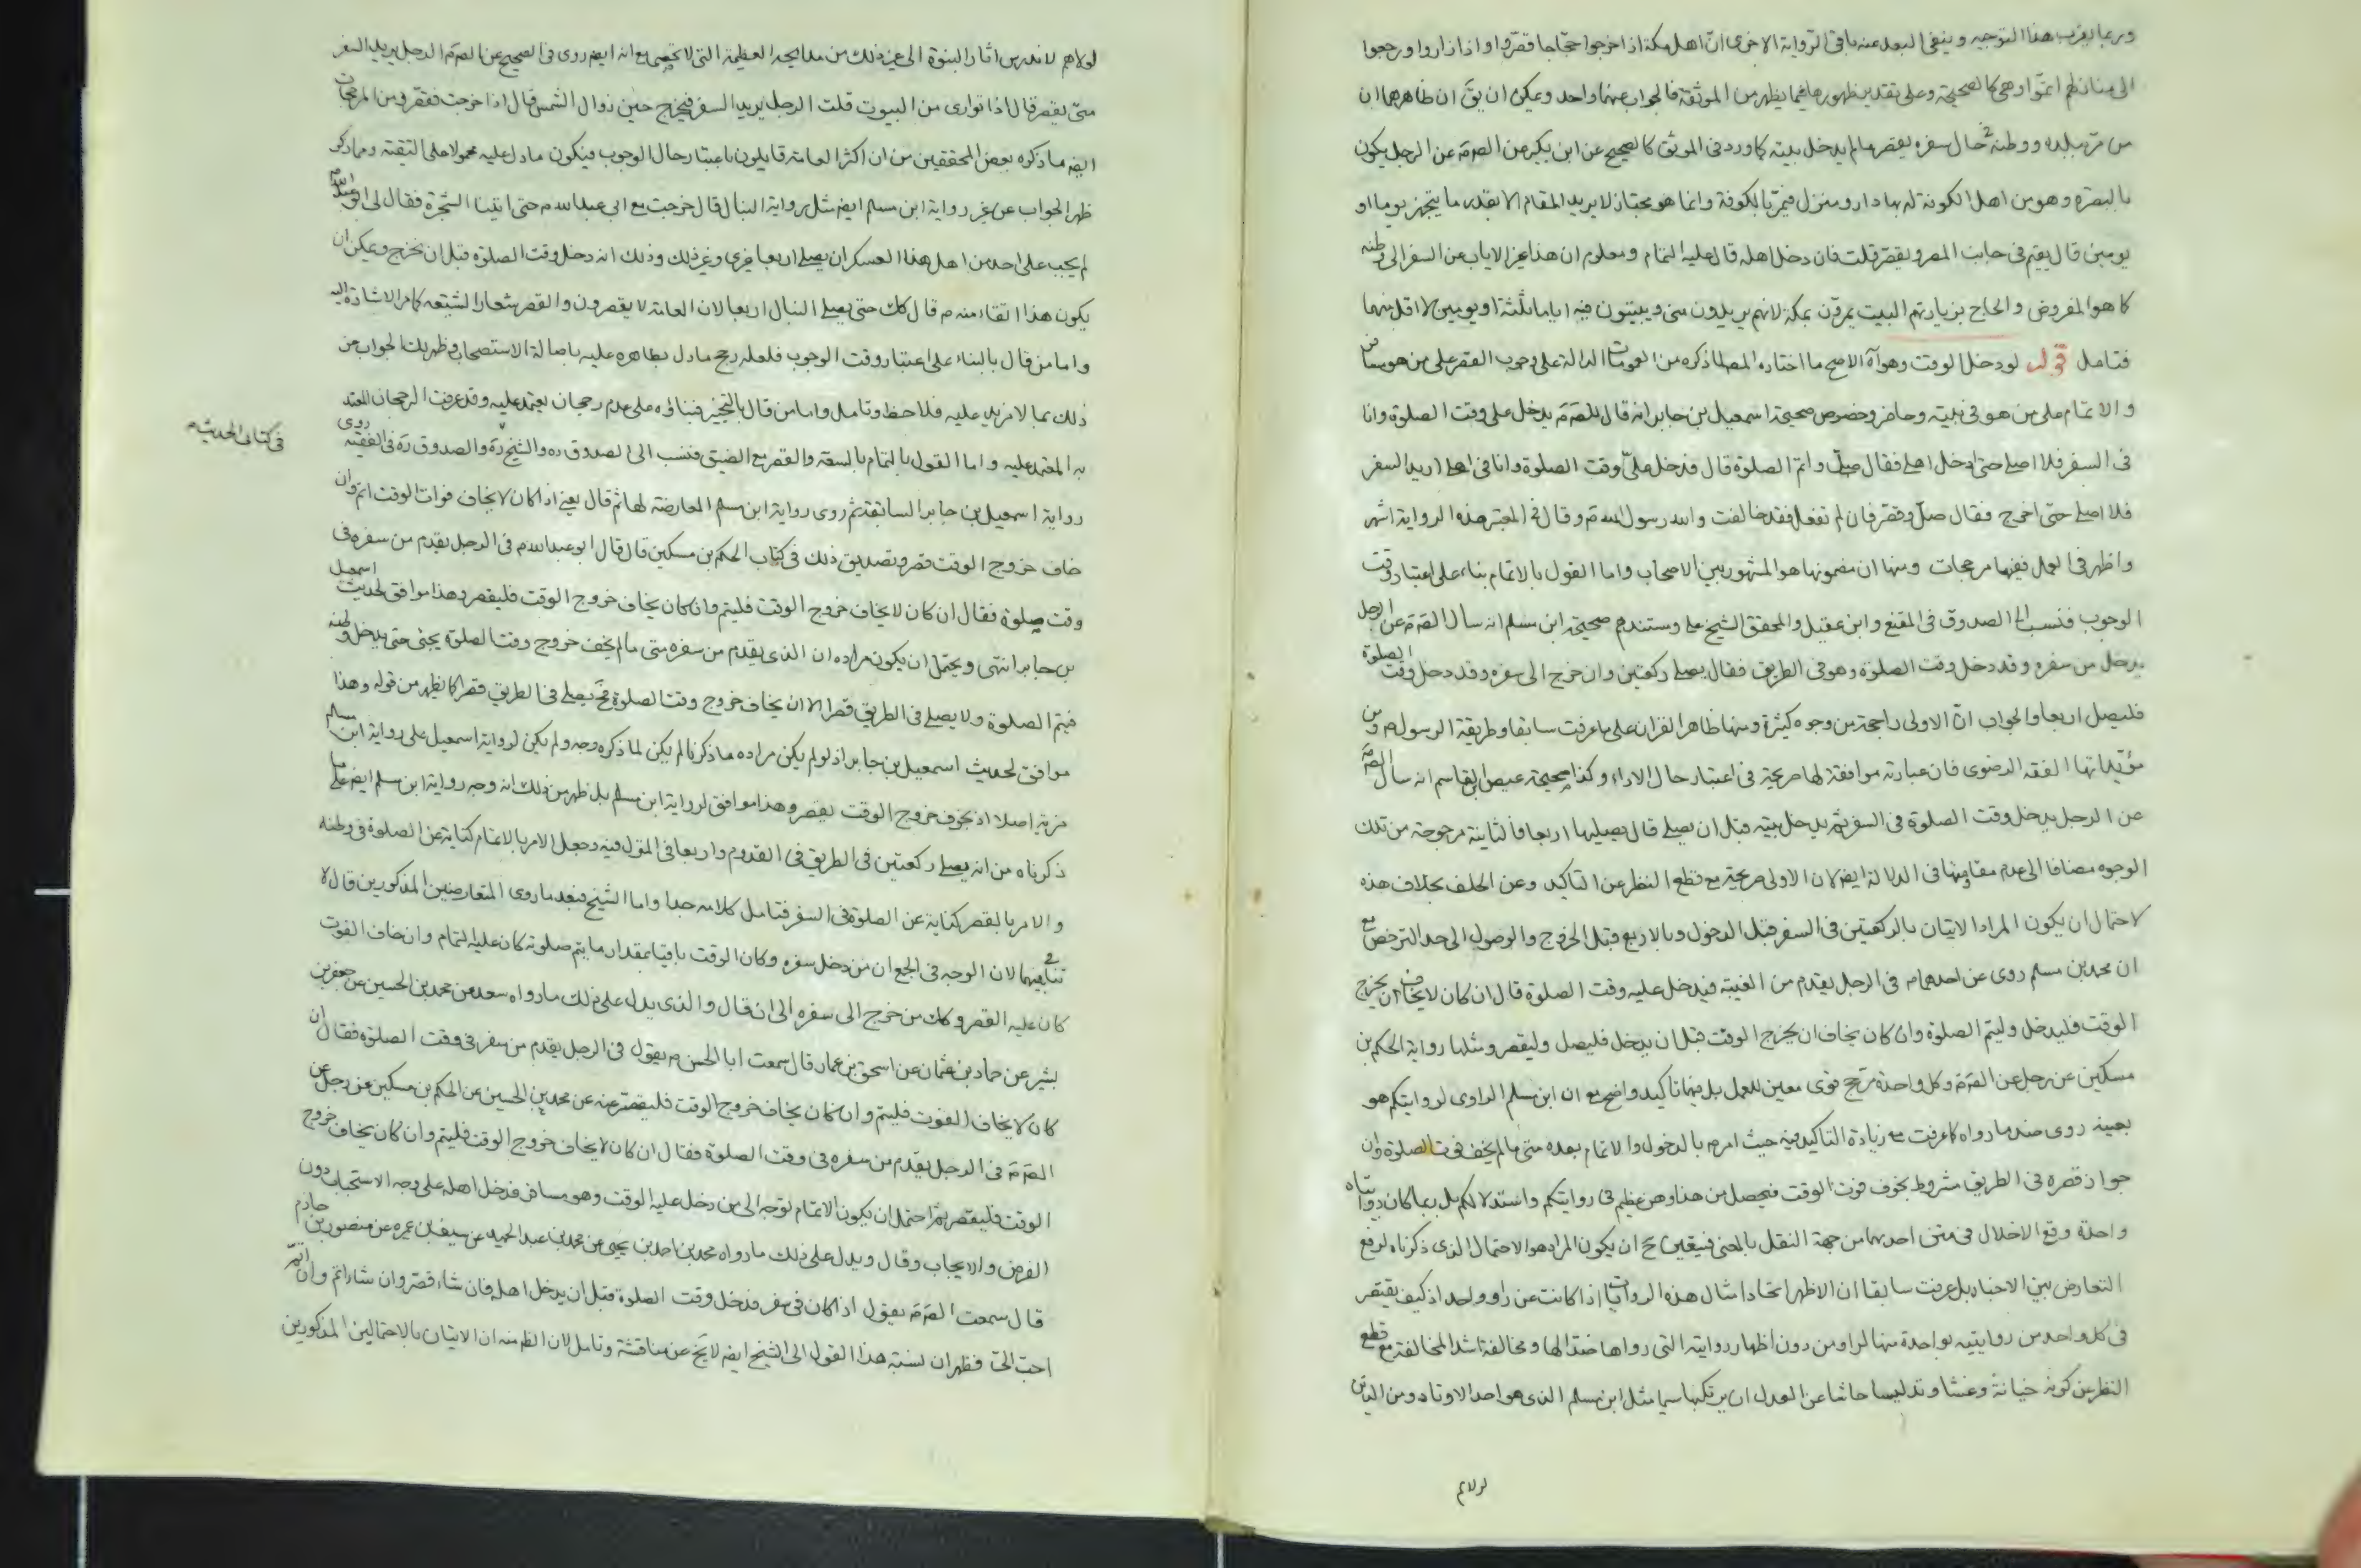 وربما يقرب هذا التوجيه وينفى البعد عنه باقى الرواية الاخرى ان اهل مكة اذا خرجوا حجاجا قصروا واذا زاروا ورجعوا
الى منازلهم اتموا وهى كالصحيحة وعلى تقدير ظهورها فيما يظهر من الموثقة فالجواب عنهما واحد ويمكن ان يق ان ظاهرهما ان
من مر ببلده ووطنه حال سفره يقصر ما لم يدخل بيته كما ورد فى الموثق كالصحيح عن ابن بكير عن الصم عن الرجل يكون
بالبصرة وهو من اهل الكوفة له بها دار ومنزل فيمر بالكوفة وانما هو مجتاز لا يريد المقام الا بقدر ما يتجهز يوما او
يومين قال يقيم فى جانب المصر ويقصر قلت فان دخل اهله قال عليه التمام ومعلوم ان هذا غير الاياب عن السفر الى وطنه
كما هو المفروض والحاج بزيارتهم البيت يمرون بمكة لانهم يريدون منى ويبيتون فيه اياما ثلثة او يومين لا اقل منهما
فتامل قوله لو دخل الوقت وهو آه الاصح ما اختاره المص لما ذكره من العمومات الدالة على وجوب القصر على من هو مسافر
والاتمام على من هو فى بيته وحاضر وخصوص صحيحة اسمعيل بن جابر انه قال للصم يدخل على وقت الصلوة وانا
فى السفر فلا اصلى حتى ادخل اهلى فقال صل واتم الصلوة قال فدخل على وقت الصلوة وانا فى اهلى اريد السفر
فلا اصلى حتى اخرج فقال صل وقصر فان لم تفعل فقد خالفت والله رسول الله م وقال فى المعتبر هذه الرواية اشهر
واظهر فى العمل ففيها مرجحات ومنها ان مضمونها هو المشهور بين الاصحاب واما القول بالاتمام بناء على اعتبار وقت
الوجوب فنسب الى الصدوق فى المقنع وابن عقيل والمحقق الشيخ على ومستندهم صحيحة ابن مسلم انه سال الصم عن الرجل
يدخل من سفره وقد دخل وقت الصلوة وهو فى الطريق فقال يصلى ركعتين وان خرج الى سفره وقد دخل وقت الصلوة
فليصل اربعا والجواب ان الاولى راجحة من وجوه كثيرة ومنها ظاهر القران على ما عرفت سابقا وطريقة الرسول م ومن
مؤيداتها الفقه الرضوى فان عبارته موافقة لها صريحة فى اعتبار حال الاداء وكذا صحيحة عيص بن القاسم انه سال الصم
عن الرجل يدخل وقت الصلوة فى السفر ثم يدخل بيته قبل ان يصلى قال يصليها اربعا فالثانية مرجوحة من تلك
الوجوه مضافا الى عدم مقاومتها فى الدلالة ايضا لان الاولى صريحة مع قطع النظر عن التاكيد وعن الحلف بخلاف هذه
لاحتمال ان يكون المراد الاتيان بالركعتين فى السفر قبل الدخول وبالاربع قبل الخروج والوصول الى حد الترخص مع
ان محمد بن مسلم روى عن احدهما م فى الرجل يقدم من الغيبة فيدخل عليه وقت الصلوة قال ان كان لا يخاف ان يخرج
الوقت فليدخل وليتم الصلوة وان كان يخاف ان يخرج الوقت قبل ان يدخل فليصل وليقصر ومثلها رواية الحكم بن
مسكين عن رجل عن الصم وكل واحدة مرجح قوى معين للعمل بل فيهما تاكيد واضح مع ان ابن مسلم الراوى لروايتكم هو
بعينه روى ضد ما رواه كما عرفت مع زيادة التاكيد فيه حيث امره بالدخول والاتمام بعده متى ما لم يخف فوت الصلوة وان
جواز قصره فى الطريق مشروط بخوف فوت الوقت فيحصل من هذا وهن عظيم فى روايتكم واستدلالكم بل ربما كان روايتاه
واحدة وقع الاخلال فى متن احدهما من جهة النقل بالمعنى فيتعين ح ان يكون المراد هو الاحتمال الذى ذكرناه لرفع
التعارض بين الاخبار بل عرفت سابقا ان الاظهر اتحاد امثال هذه الروايات اذا كانت عن راو واحد اذ كيف يقتصر
فى كل واحد من روايتيه بواحدة منها لراو من دون اظهار روايته التى رواها ضدا لها ومخالفة اشد المخالفة مع قطع
النظر عن كونه خيانة وغشا وتدليسا حاشا عن العدل ان يرتكبها سيما مثل ابن مسلم الذى هو احد الاوتاد ومن الذين
لولاهم
لولاهم لاندرس اثار النبوة الى غير ذلك من مدايحه العظيمة التى لا تحصى مع انه ايضا روى فى الصحيح عن الصم الرجل يريد السفر
متى يقصر قال اذا توارى من البيوت قلت الرجل يريد السفر فيخرج حين زوال الشمس قال اذا خرجت فقصر ومن المرجحات
ايضا ما ذكره بعض المحققين من ان اكثر العامة قايلون باعتبار حال الوجوب فيكون ما دل عليه محمولا على التقية ومما ذكر
ظهر الجواب عن غير رواية ابن مسلم ايضا مثل رواية النبال قال خرجت مع ابى عبد الله م حتى اتينا الشجرة فقال لى ابو عبد الله م
لم يجب على احد من اهل هذا العسكر ان يصلى اربعا غيرى وغيرك وذلك انه دخل وقت الصلوة قبل ان نخرج ويمكن ان
يكون هذا اتقاء منه م قال كك حتى يصلى النبال اربعا لان العامة لا يقصرون والقصر شعار الشيعة كما مر الاشارة اليه
واما من قال بالبناء على اعتبار وقت الوجوب فلعله رجح ما دل بظاهره عليه باصالة الاستصحاب وظهر لك الجواب عن
ذلك بما لا مزيد عليه فلاحظ وتامل واما من قال بالتخيير فبناؤه على عدم رجحان يعتمد عليه وقد عرفت الرجحان المعتد
به المعتمد عليه واما القول بالتمام بالسعة والقصر مع الضيق فنسب الى الصدوق ره والشيخ ره والصدوق ره فى الفقيه روى
فى كتابى الحديث م
رواية اسمعيل بن جابر السابقة ثم روى رواية ابن مسلم المعارضة لها ثم قال يعنى اذا كان لا يخاف فوات الوقت اتم وان
خاف خروج الوقت قصر وتصديق ذلك فى كتاب الحكم بن مسكين قال قال ابو عبد الله م فى الرجل يقدم من سفره فى
وقت صلوة فقال ان كان لا يخاف خروج الوقت فليتم وان كان يخاف خروج الوقت فليقصر وهذا موافق لحديث اسمعيل
بن جابر انتهى ويحتمل ان يكون مراده ان الذى يقدم من سفره متى ما لم يخف خروج وقت الصلوة يجئى حتى يدخل وطنه
فيتم الصلوة ولا يصلى فى الطريق قصرا الا ان يخاف خروج وقت الصلوة فح يصلى فى الطريق قصرا كما يظهر من قوله وهذا
موافق لحديث اسمعيل بن جابر اذ لو لم يكن مراده ما ذكرنا لم يكن لما ذكره وجه ولم يكن لرواية اسمعيل على رواية ابن مسلم
مزية اصلا اذ بخوف خروج الوقت يقصر وهذا موافق لرواية ابن مسلم بل ظهر من ذلك انه وجه رواية ابن مسلم ايضا على ما
ذكرناه من انه يصلى ركعتين فى الطريق فى القدوم واربعا فى المنزل فيه وجعل الامر بالاتمام كناية عن الصلوة فى وطنه
والامر بالقصر كناية عن الصلوة فى السفر فتامل كلامه جدا واما الشيخ فبعد ما روى المتعارضين المذكورين قال لا
تنافى بينهما لان الوجه فى الجمع ان من دخل سفره وكان الوقت باقيا بمقدار ما يتم صلوته كان عليه التمام وان خاف الفوت
كان عليه القصر وكك من خرج الى سفره الى ان قال والذى يدل على ذلك ما رواه سعد عن محمد بن الحسين عن جعفر بن
بشير عن حماد بن عثمان عن اسحق بن عمار قال سمعت ابا الحسن م يقول فى الرجل يقدم من سفر فى وقت الصلوة فقال ان
كان لا يخاف الفوت فليتم وان كان يخاف خروج الوقت فليقصر عنه عن محمد بن الحسين عن الحكم بن مسكين عن رجل عن
الصم فى الرجل يقدم من سفره فى وقت الصلوة فقال ان كان لا يخاف خروج الوقت فليتم وان كان يخاف خروج
الوقت فليقصر ثم احتمل ان يكون الاتمام توجه الى من دخل عليه الوقت وهو مسافر فدخل اهله على وجه الاستحباب دون
الفرض والايجاب وقال ويدل على ذلك ما رواه محمد بن احمد بن يحيى عن محمد بن عبد الحميد عن سيف بن عميره عن منصور بن حازم
قال سمعت الصم يقول اذا كان فى سفر فدخل وقت الصلوة قبل ان يدخل اهله فان شاء قصر وان شاء اتم وان اتم
احب الى فظهر ان نسبة هذا القول الى الشيخ ايضا لا يخ عن مناقشة وتامل لان الظ منه ان الاتيان بالاحتمالين المذكورين